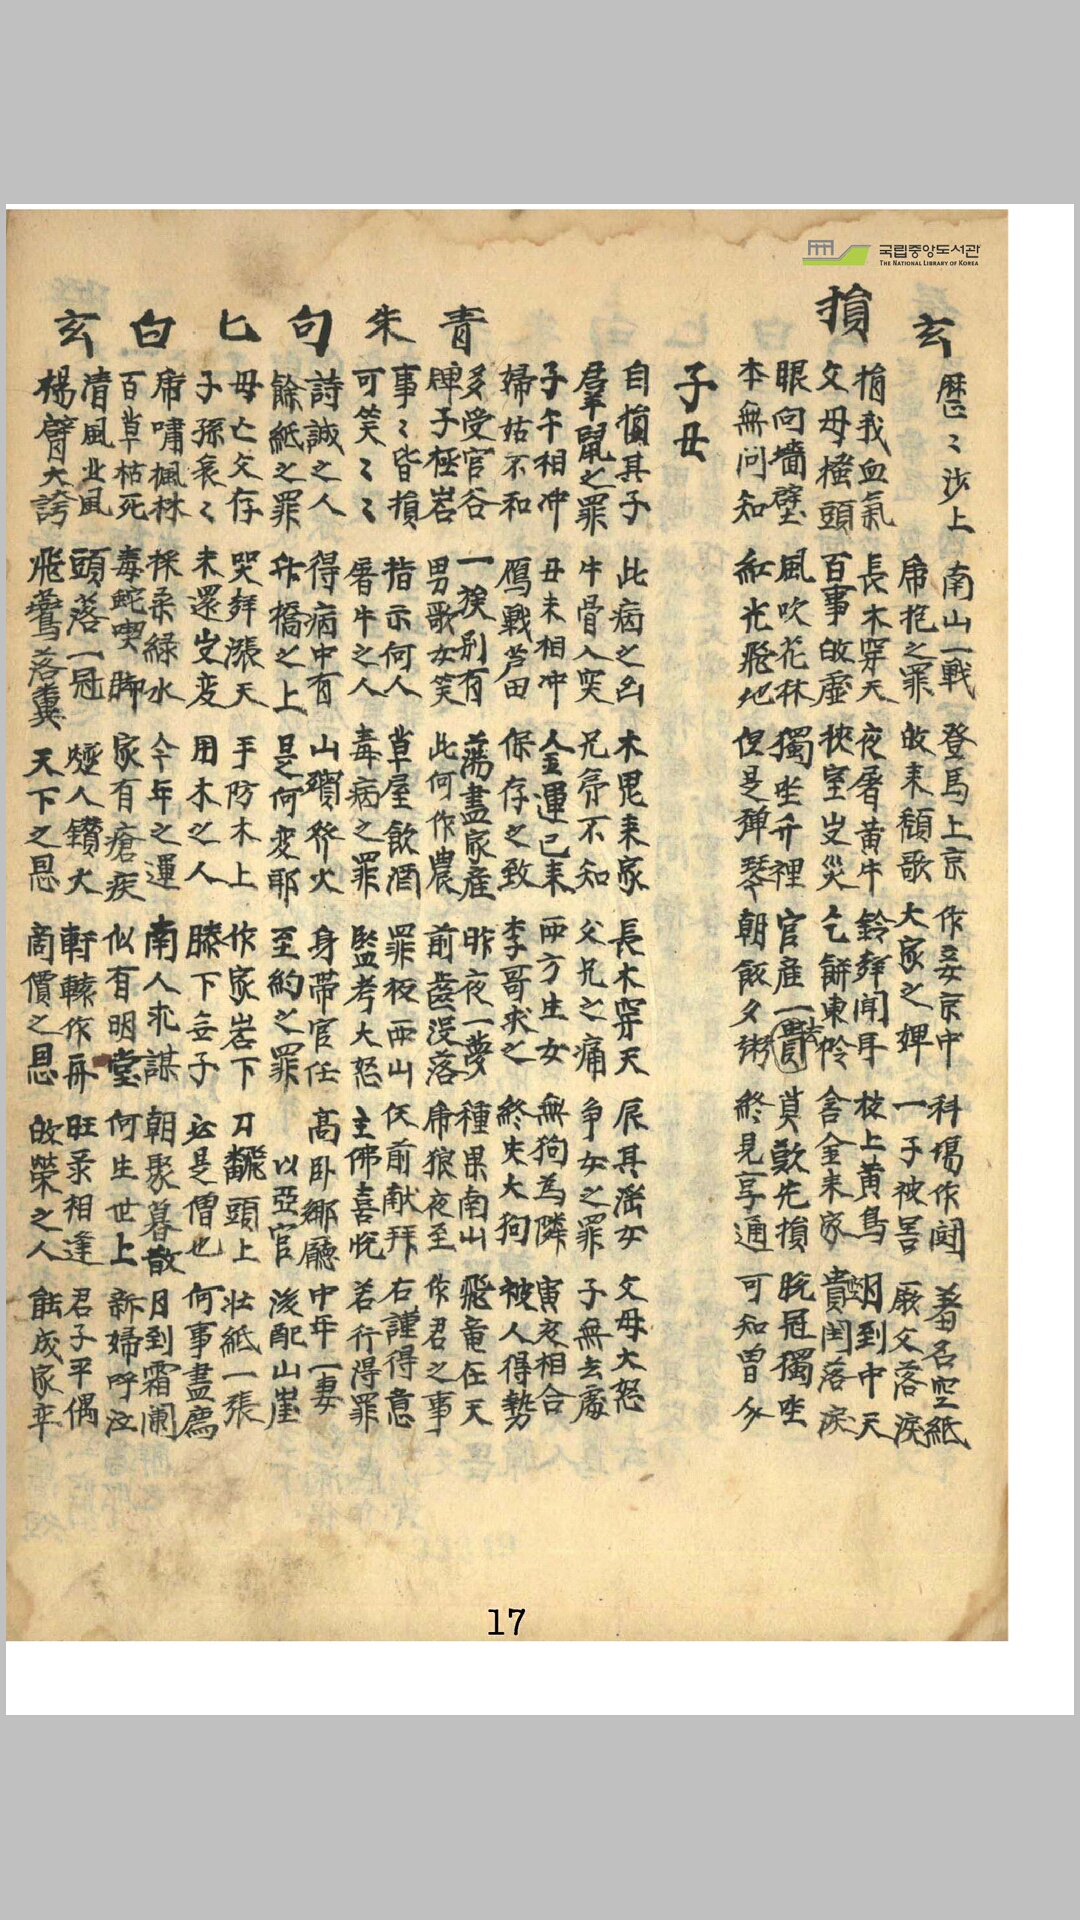 국립중앙도서관
THE NATIONAL LIBRARY OF KOREA
玄 損 青 朱 句 匕 白 玄
曆〻沙上 南山一戰 登馬上京 作妾京中 科場作鬪 蕃名空紙
虎抱之罪 故来顏歌 大家之婢 一子被害 厥父落淚
損我血氣 長木穿天 夜屠黃牛 鈴聲聞耳 枝上黃鳥 明月到中天
父母搔頭 百事故虛 狹室受災 乞餠東怜 舍金来家 貴門落淚
眼向墻壁 風吹花林 獨坐井裡 官産一 莫歎先損 脫冠獨坐
本無问知 紅光飛地 但是彈琴 朝飯夕粥 終見亨通 可知曾多
子丑
自損其子 此病之凶 木鬼来家 長木穿天 辰其淫女 父母大怒
君羊鼠之罪 牛骨入突 兄弟不知 父兄之痛 争女之罪 子無去處
子午相冲 丑未相冲 金運已来 西方生女 無狗為隣 寅亥相合
婦姑不和 鴈戰芦田 保存之致 李哥求之 終失大狗 被人得勢
多受官谷 一族別有 蕩盡家産 昨夜一夢 種果南山 飛竜在天
婢子極岩 男歌女笑 此何作農 前齒没落 虎狼夜至 作君之事
事〻皆損 指示何人 草屋飮酒 罪极西山 仸前献拜 右謹得意
可笑〻〻 屠牛之人 毒病之罪 監考大怒 主佛喜悅 若行得罪
詩誠之人 得病中有 山頭發火 身帶官任 高卧鄉廳 中年一妻
餘紙之罪 舟橋之上 是何変耶 至約之罪 以亞官 後配山崖
母亡父存 哭聲漲天 手防木上 作家岩下 刀飜頭上 壯紙一張
子孫衰〻 未還受変 用木之人 膝下無子 必是僧也 何事盡廌
虎嘯楓林 採桑緑水 今年之運 南人求謀 朝聚暮散 月到霜闌
百草枯死 毒蛇喫脚 家有瘡疾 似有明堂 何生世上 新婦呼泣
清風北風 頭落一冠 燧人鑽火 軒轅作再 旺彔相逢 君子平偶
楊臂大誇 飛鷰落糞 天下之恩 商價之恩 故榮之人 能成家卒
17